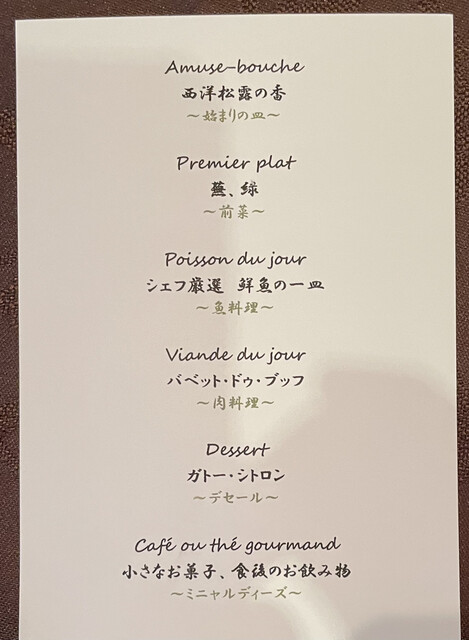 Amuse-bouche
西洋松露の香
～始まりの皿～
Premier plat
蕪、緑
～前菜～
Poisson du jour
シェフ厳選 鮮魚の一皿
～魚料理～
Viande du jour
バベット・ドゥ・ブッフ
～肉料理～
Dessert
ガトー・シトロン
～デセール～
Café ou thé gourmand
小さなお菓子、食後のお飲み物
～ミニャルディーズ～